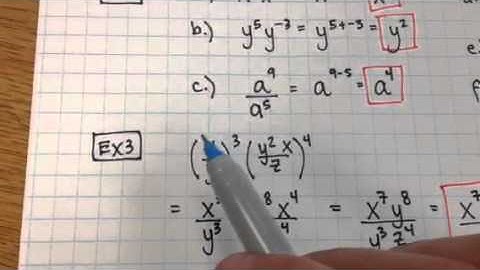 b.) y⁵y⁻³ = y⁵⁺⁻³ = y²
c.) a⁹/a⁵ = a⁹⁻⁵ = a⁴
EX3 ( )³ (y²x/z)⁴
= x /y³ ⁸x⁴/ ⁴ = x⁷y⁸/y³z⁴ = x⁷